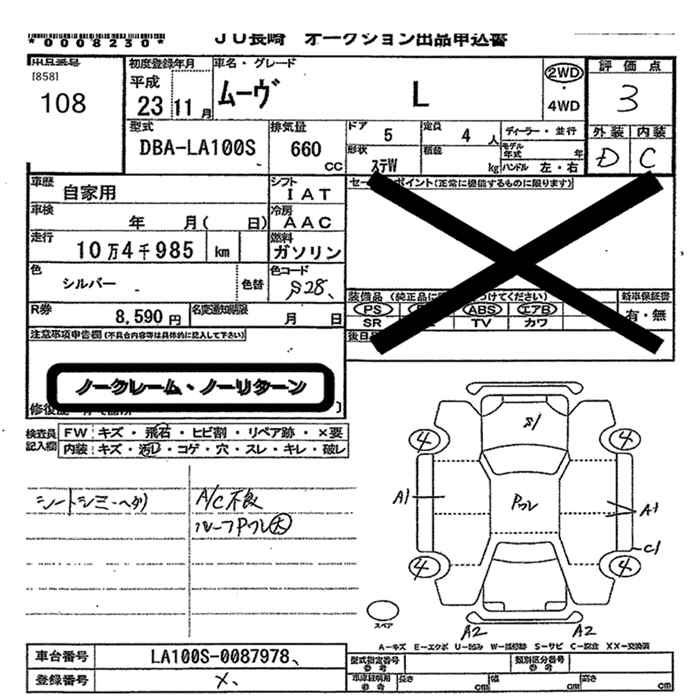 *0008230*
JU長崎 オークション出品申込書
[858]
108
初度登録年月
平成
23 11月
車名・グレード
ムーヴ L
2WD
・
4WD
評価点
3
外装 内装
D C
型式
DBA-LA100S
排気量
660
CC
ドア 5
定員 4 人
形状 ステW
積載 kg
ディーラー・並行
モデル年式 年
ハンドル 左・右
車歴
自家用
シフト
IAT
車検
年 月( 日)
冷房
AAC
走行
10万4千985 km
燃料
ガソリン
色
シルバー
色替
色コード
S28
R券
8,590円
名変通知期限
月 日
セールスポイント(正常に機能するものに限ります)
PS ABS エアB
SR TV カワ
新車保証書
有・無
注意事項申告欄(不具合内容等は具体的に記入して下さい)
ノークレーム・ノーリターン
検査員記入欄
FW キズ・飛石・ヒビ割・リペア跡・×要
内装 キズ・汚レ・コゲ・穴・スレ・キレ・破レ
シートシミ・ヘタリ
A/C不良
ルーフPワレ大
S1
4 4
A1
Pワレ
A1
C1
4 4
スペア
A2 A2
A-キズ E-エクボ U-凹み W-補修跡 S-サビ C-腐食 XX-交換済
車台番号
LA100S-0087978
登録番号
×
型式指定番号
類別区分番号
長さ cm 幅 cm 高さ cm